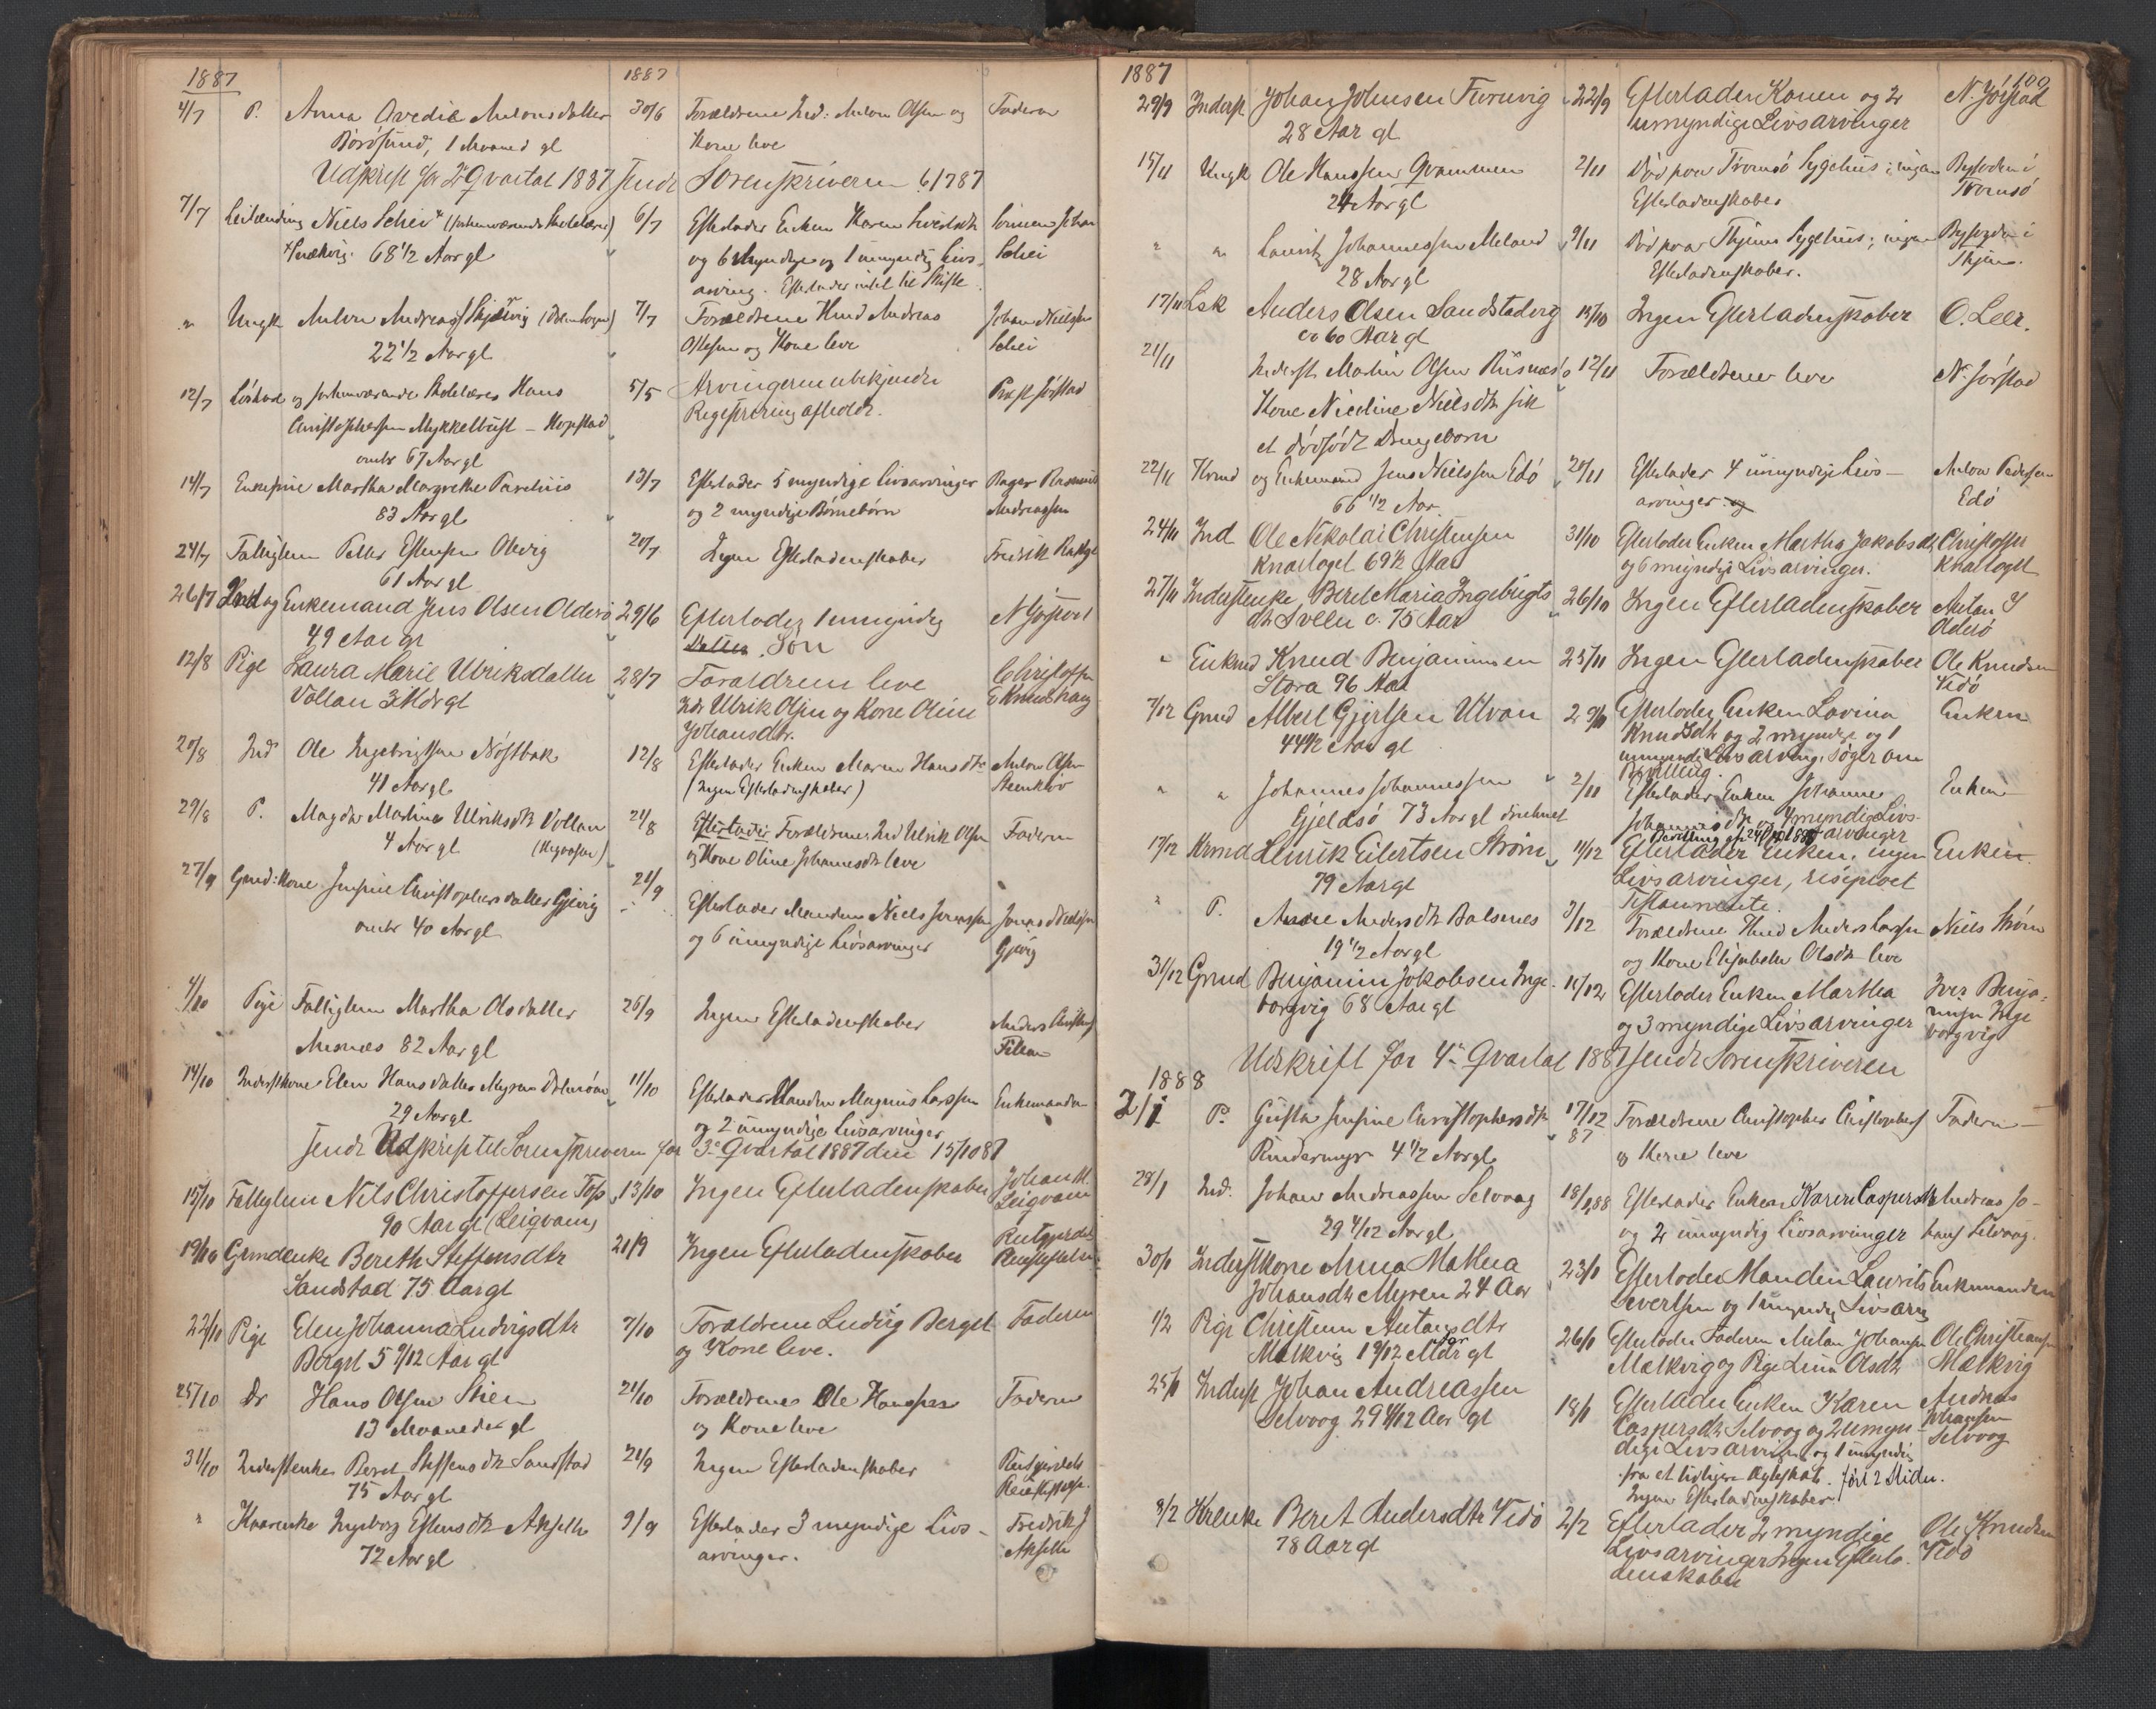 1887
1887
4/7 P. Anna Avedie Antonsdatter 30/6 Forældrene Ind: Anton Olsen og Faderen
Børøsund, 1 Maaned gl Kone leve
Udskrift for 2t Qvartal 1887 sendt Sorenskriveren 6/7 87
7/7 Leilænding Niels Schei x (forhenværende Skolelærer) 6/7 Efterlader Enken Karen Johan
68 1/2 Aar gl og 6 Myndige og 1 umyndig Livs- Schei
arving. Efterlader intet til Skifte
" Ungk Anton Andreas Skjærvig 7/7 Forældrene Hmd Andreas Johan Nielsen
22 1/2 Aar gl Olsen og Kone leve Schei
12/7 og forhenværende Skolelærer Hans 5/5 Arvingerne ubekjendte Præst Jørstad
Christophersen Myklebust - Hopstad Registrering afholdt.
omtr 67 Aar gl
14/7 Martha Margrethe Parelius 13/7 Efterlader 5 myndige Livsarvinger Rasmus
83 Aar gl og 2 myndige Børnebørn Andreassen
24/7 Fattiglem Peter Estensen Olvig 20/7 Ingen Efterladenskaber Fredrik
61 Aar gl
26/7 Ind og Enkemand Jens Olsen Olderø 29/6 Efterlader 1 umyndig N Jørstad
49 Aar gl Datter. Søn
12/8 Pige Laura Marie Ulriksdatter 28/7 Forældrene leve Christoffer
Vollan 3 Mdr gl Ind Ulrik Olsen og Kone Oline E Knudshaug
Johansdtr.
20/8 Ind Ole Ingebrigtsen Nøstbak 12/8 Efterlader Enken Maren Hansdtr Anton Olsen
41 Aar gl (Ingen Efterladenskaber) Steenkløv
29/8 P. Magda Martine Ulriksdtr Vollan 21/8 Efterlader Forældrene Ind Ulrik Olsen Faderen
4 Aar gl og Kone Oline Johannesdtr leve
27/9 Gmd: Kone Jensine Christophersdatter Gjevig 21/9 Efterlader Manden Niels Jonassen Jonas Nielsen
omtr 40 Aar gl og 6 umyndige Livsarvinger Gjevig
4/10 Pige Fattiglem Martha Olsdatter 26/9 Ingen Efterladenskaber Anders
Aunes 82 Aar gl Fillan
14/10 Inderstkone Elen Hansdatter Myran 11/10 Efterlader Manden Magnus Larssen Enkemanden
29 Aar gl og 2 umyndige Livsarvinger
Sendt Udskrift til Sorenskriveren for 3e Qvartal 1887 den 15/10 87
15/10 Fattiglem Nils Christoffersen 13/10 Ingen Efterladenskaber Johan H.
90 Aar gl (Leigvam) Leigvam
19/10 Grmdenke Bereth Steffensdtr 21/9 Ingen Efterladenskaber
Sandstad 75 Aar gl
22/10 Pige Elen Johanna Ludvigsdtr 7/10 Forældrene Ludvig Berget Faderen
Berget 5 9/12 Aar gl og Kone leve.
25/10 Dr Hans Olsen Stien 21/10 Forældrenes Ole Hanssen Faderen
13 Maaneder gl og Kone leve
31/10 Inderstenke Beret Steffensdtr Sandstad 21/9 Ingen Efterladenskaber
75 Aar gl
" Ingeborg Estensdtr Akseth 9/9 Efterlader 3 myndige Livs- Fredrik J
72 Aar gl arvinger. Akseth
1887
100
29/9 Inderst Johan Johnsen Furuvig 22/9 Efterlader Konen og 2 N. Jørstad
28 Aar gl umyndige Livsarvinger
15/11 Ungk Ole Hanssen Qvammen 2/11 Død paa Tromsø Sygehus; ingen Byfoden i
24 Aar gl Efterladenskaber Tromsø
" " Lauritz Johannessen Meland 9/11 Død paa Thjems Sygehus; ingen Byfogden i
28 Aar gl Efterladenskaber. Thjem.
17/11 Lsk Anders Olsen Sandstadvig 15/10 Ingen Efterladenskaber O. Leer.
ca 60 Aar gl
21/11 Inderst Martin Olsen Risnæs 12/11 Forældrene leve N. Jørstad
Kone Nicoline Nielsdtr fik
et dødfødt Drengebarn
22/11 Krmd og Enkemand Jens Nielssen Edø 20/11 Efterlader 4 umyndige Livs- Anton Pedersen
66 1/2 Aar arvinger og Edø
24/11 Ind Ole Nikolai Christensen 31/10 Efterlader Enken Martha Jakobsdtr Christoffer
Knarlaget 69 1/2 Aar og 6 myndige Livsarvinger. Knarlaget
27/11 Inderstenke Beret Maria Ingebrigts 26/10 Ingen Efterladenskaber Anton J
dtr Svellu c. 75 Aar Olderø
" Enkmd Knud Benjaminsen 25/11 Ingen Efterladenskaber Ole Knudsen
Stora 96 Aar Vedø
7/12 Grmd Albert Gjertsen Ulvan 29/11 Efterlader Enken Lovina Enken
44 1/2 Aar gl Knudsdtr og 2 myndige og 1
umyndig Livsarving. Søger om
Bevilling.
" " Johannes Johannessen 2/11 Efterlader Enken Johanne Enken
Gjeldsø 73 Aar gl druknet Johannesdtr og 4 myndige Livs-
arvinger
17/12 Krmd Henrik Eilertsen Strøm 11/12 Efterlader Enken, ingen Enken.
79 Aar gl Livsarvinger, reciproct
Testamente.
" P. Anne Andersdtr Balsnes 3/12 Forældrene Hmd Anders Larssen Niels Strøm
19 1/2 Aar gl og Kone Elisabeth Olsdtr leve
31/12 Grmd Benjamin Jakobsen Inge- 10/12 Efterlader Enken Martha Iver Benja-
borgvig 68 Aar gl og 3 myndige Livsarvinger minsn Inge
borgvig
Udskrift for 4de Qvartal 1887 sendt Sorenskriveren
1888
2/1 P. Gusta Jensine Christophersdtr 17/12 87 Forældrene Christopher Christophers Faderen
Rindarmyr 4 1/2 Aar gl og Kone leve
28/1 Ind. Johan Andreassen Selvaag 18/1 88 Efterlader Enken Karen Caspersdtr Andreas Jo-
29 4/12 Aar gl og 2 umyndig Livsarvinger hans Selvaag.
30/1 Inderstkone Anna Mathea 23/1 Efterlader Manden Laurits Enkemanden
Johansdtr Myren 24 Aar Sivertsen og 1 umyndig Livsarving
1/2 Pige Christine Antonsdtr 26/1 Efterlader Faderen Anton Johansen Ole Christiansen
Mælkvig 1 9/12 Aar gl Mælkvig og Pige Lina Olsdtr Mælkvig
25/1 Inderst Johan Andreassen 18/1 Efterlader Enken Karen Andreas
Selvaag 29 4/12 Aar gl Caspersdtr Selvaag og 2 umyn- Johansen
dige Livsarvinger og 1 umyndig Selvaag
fra et tidligere Ægteskab. ført 2 Steder.
Ingen Efterladenskaber.
8/2 Krenke Beret Andersdtr Vedø 2/2 Efterlader 2 myndige Ole Knudsen
78 Aar gl Livsarvinger Ingen Efterla- Vedø
denskaber